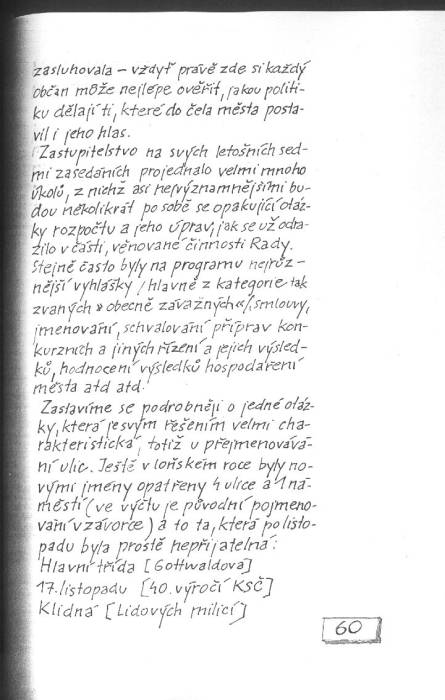 zasluhovala – vždyť právě zde si každý
občan může nejlépe ověřit, jakou politi-
ku dělají ti, které do čela města posta-
vil i jeho hlas.
Zastupitelstvo na svých letošních sed-
mi zasedáních projednalo velmi mnoho
úkolů, z nichž asi nejvýznamnějšími bu-
dou několikrát po sobě se opakující otáz-
ky rozpočtu a jeho úprav, jak se už odra-
zilo v části, věnované činnosti Rady.
Stejně často byly na programu nejrůz-
nější vyhlášky /hlavně z kategorie tak
zvaných »obecně závažných«/, smlouvy,
jmenování, schvalování příprav kon-
kurzních a jiných řízení a jejich výsled-
ků, hodnocení výsledků hospodaření
města atd atd.
Zastavíme se podrobněji o jedné otáz-
ky, která je svým řešením velmi cha-
rakteristická, totiž u přejmenovává-
ní ulic. Ještě v loňském roce byly no-
vými jmény opatřeny 4 ulice a 1 ná-
městí (ve výčtu je původní pojmeno-
vání v závorce) a to ta, která po listo-
padu byla prostě nepřijatelná:
Hlavní třída [Gottwaldova]
17. listopadu [40. výročí KSČ]
Klidná [Lidových milicí]
60